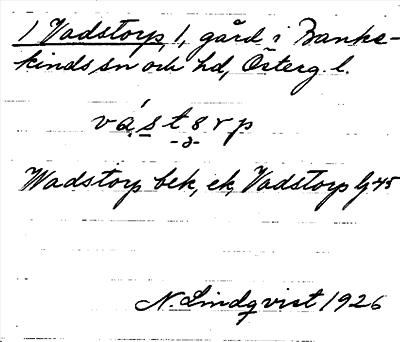 1 Vadstorp, 1, gård i Banke-
kinds sn och hd, Österg. l.
vástərp
-ə-
Wadstorp bek, ek, Vadstorp Gj 45
N. Lindqvist 1926